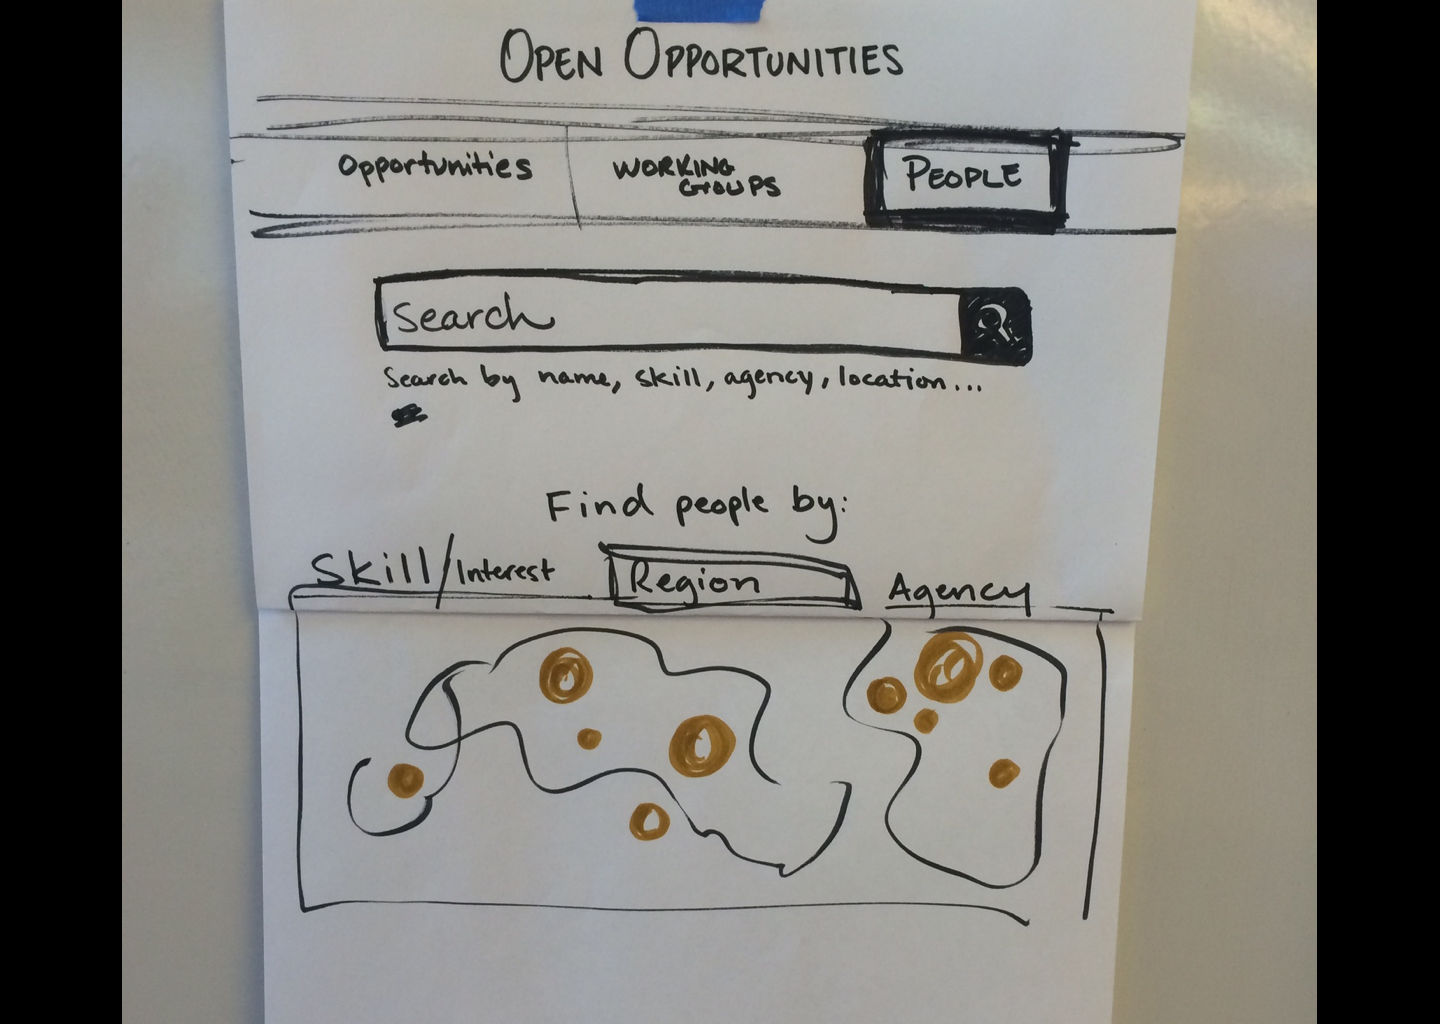 OPEN OPPORTUNITIES
Opportunities
WORKING
GROUPS
PEOPLE
Search
Search by name, skill, agency, location...
Find people by:
Skill/Interest
Region
Agency